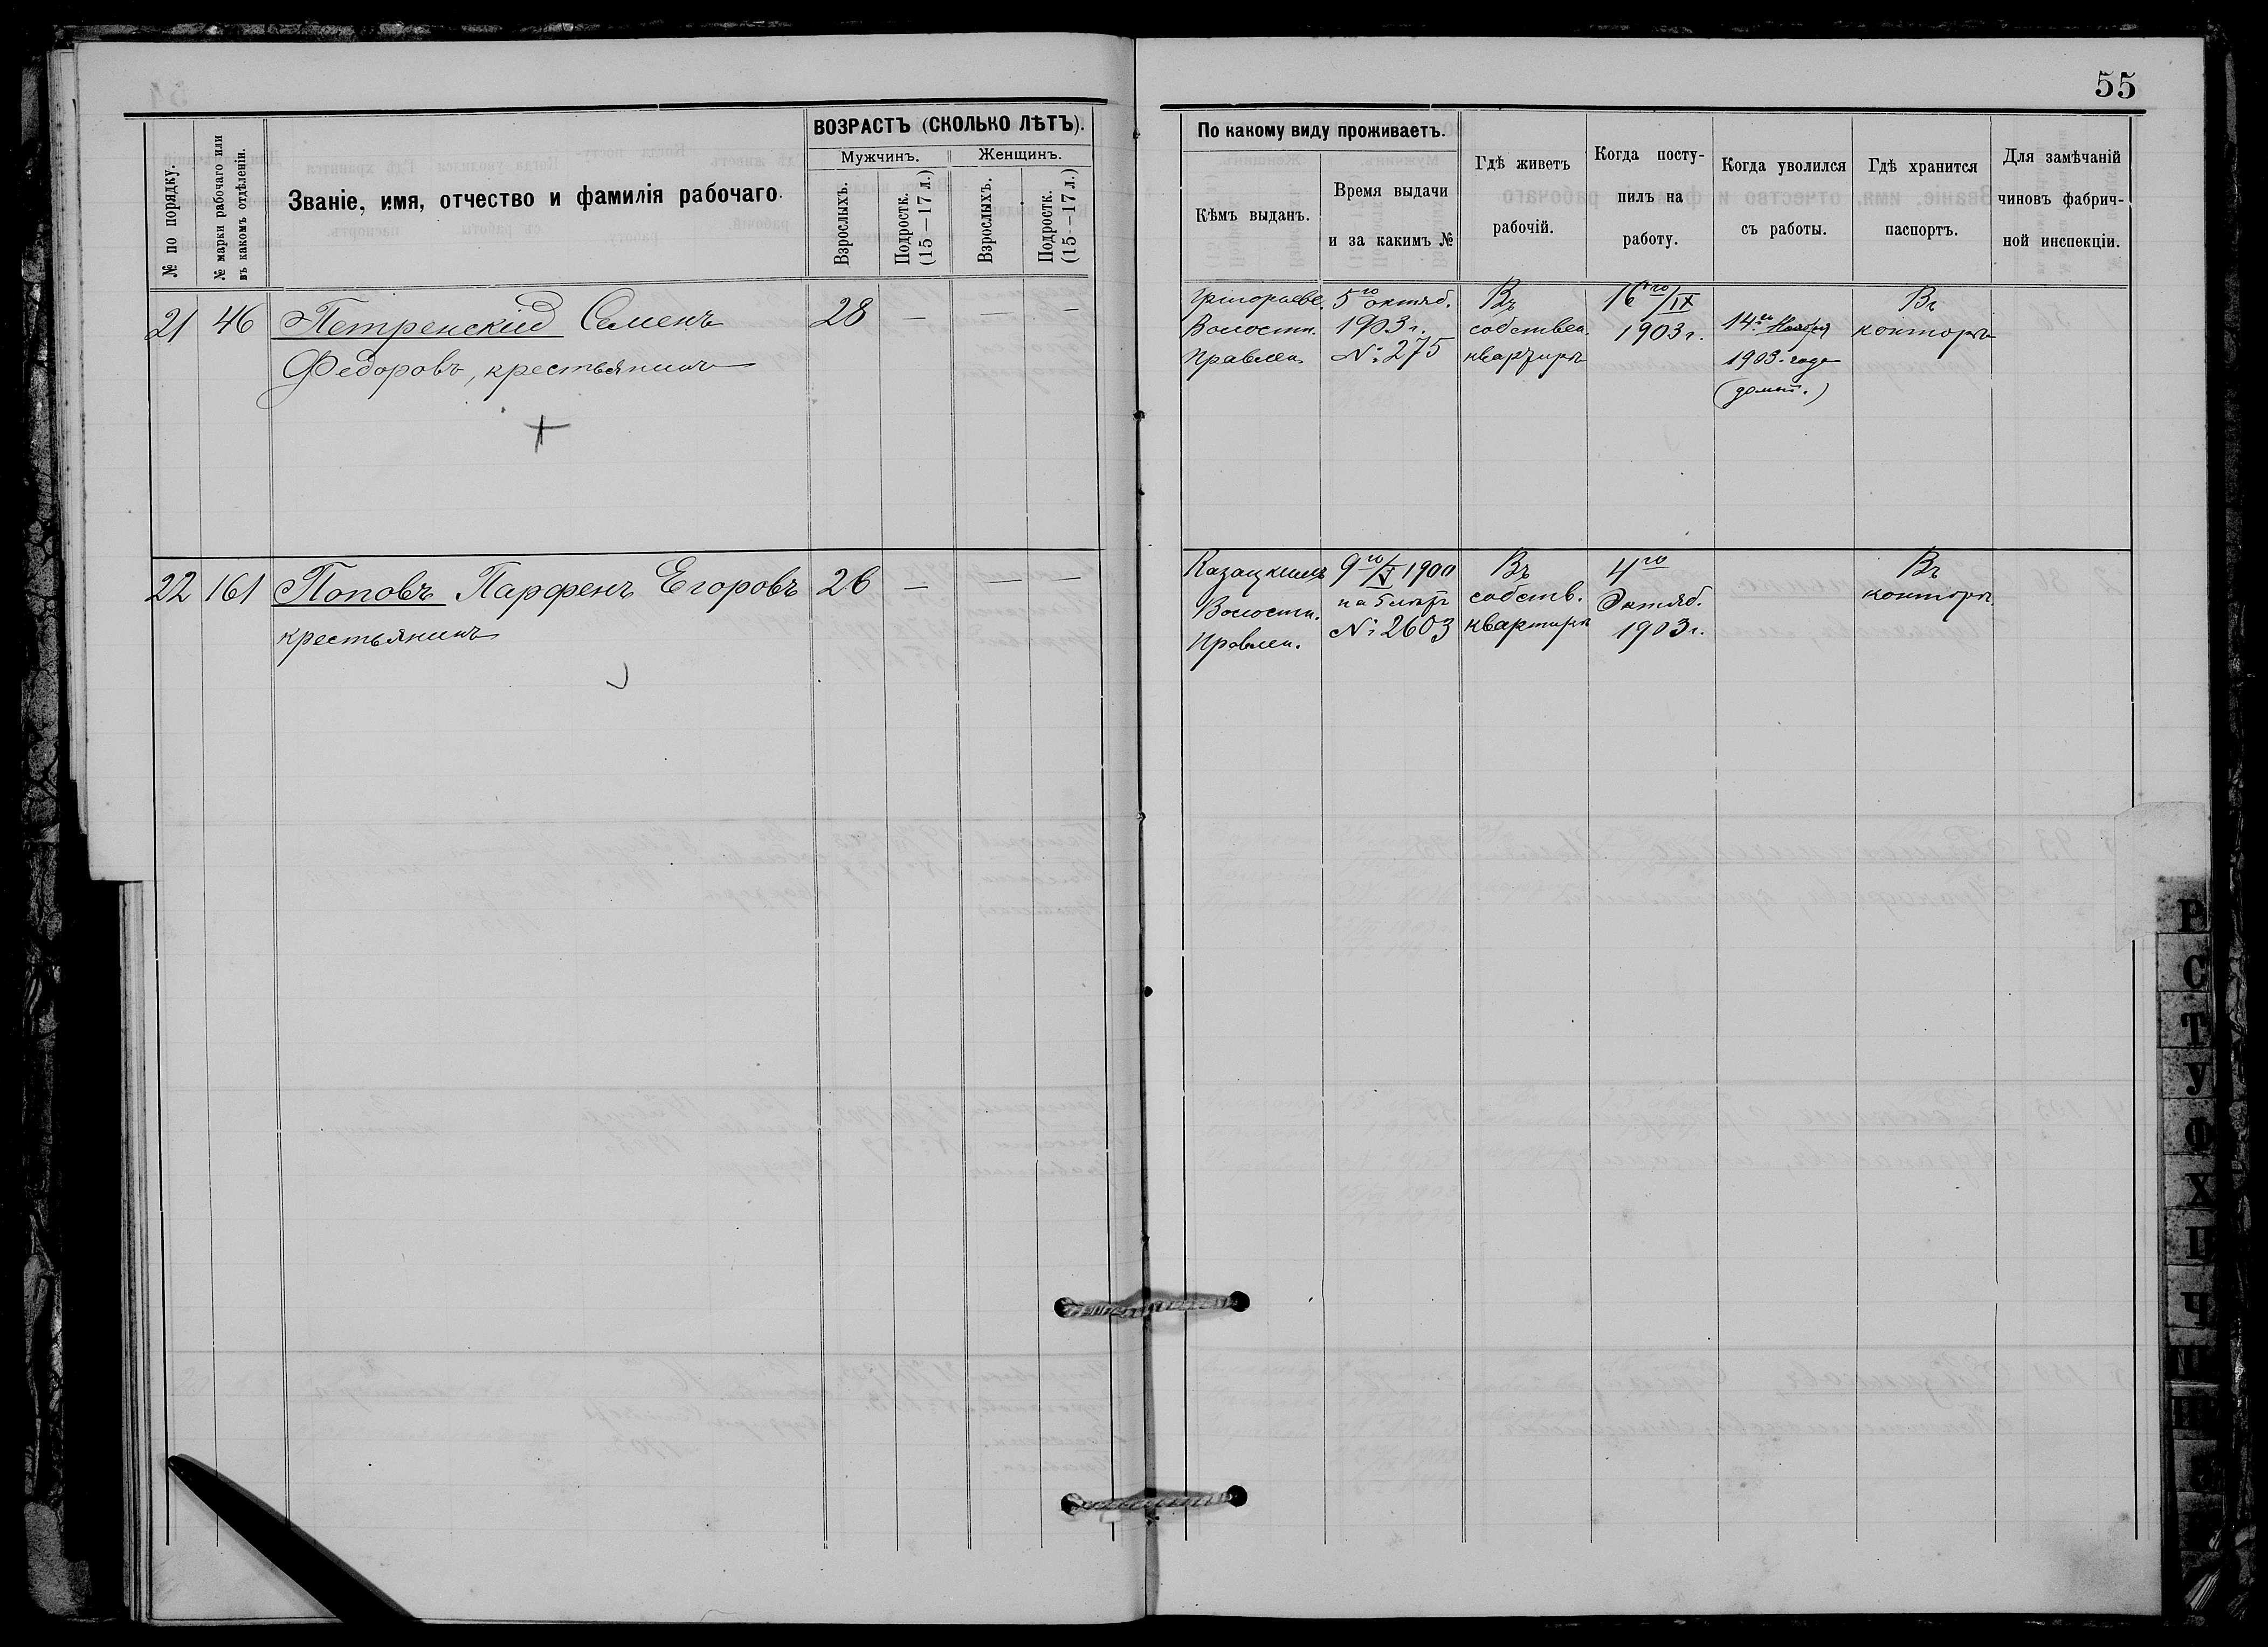 55
№ по порядку.
№ марки рабочаго или
въ какомъ отдѣленіи.
Званіе, имя, отчество и фамилія рабочаго.
ВОЗРАСТЪ (СКОЛЬКО ЛѢТЪ).
Мужчинъ.
Женщинъ.
Взрослыхъ.
Подростк.
(15—17 л.)
Взрослыхъ.
Подростк.
(15—17 л.)
По какому виду проживаетъ.
Кѣмъ выданъ.
Время выдачи
и за какимъ №
Гдѣ живетъ
рабочій.
Когда посту-
пилъ на
работу.
Когда уволился
съ работы.
Гдѣ хранится
паспортъ.
Для замѣчаній
чиновъ фабрич-
ной инспекціи.
21
46
Петренскій Семенъ
Федоровъ, крестьянинъ
28
—
—
—
Григорьевс.
Волостн.
Правлен.
5го октяб.
1903 г.
№ 275
Въ
собствен.
квартирѣ
16го/IX
1903 г.
14го Ноября
1903 года
Въ
конторѣ
22
161
Поповъ Парфенъ Егоровъ
крестьянинъ
26
—
—
—
Казацкимъ
Волостн.
Правлен.
9го/V 1900
на 5 лѣтъ
№ 2603
Въ
собств.
квартирѣ
4го
Октяб.
1903 г.
Въ
конторѣ
Р
С
Т
У
Ф
Х
Ц
Ч